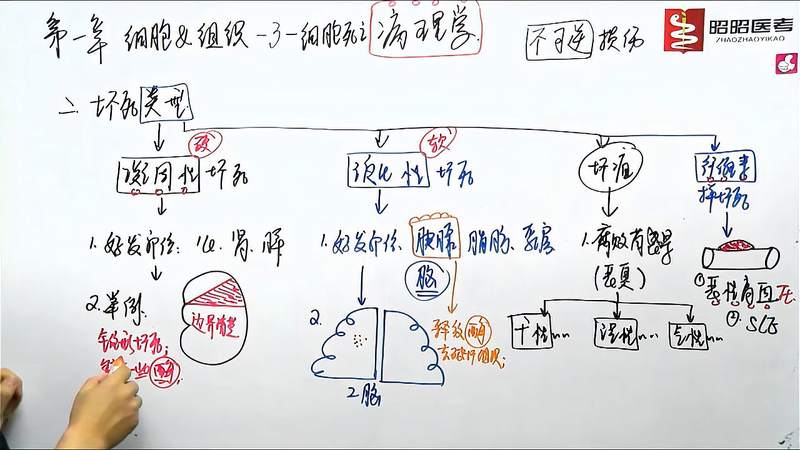 第一章 细胞&组织-3-细胞死亡 病理学
不可逆 损伤
昭昭医考
ZHAOZHAOYIKAO
二、坏死类型
硬
凝固性 坏死
软
液化性 坏死
坏疽
纤维素
样坏死
1.好发部位:心、肾、脾
1.好发部位、胰腺 脂肪、乳房
脑
1.腐败菌感染
(恶臭)
①恶性高血压
②SLE
2.举例
边界清楚
2.
2脑
释放酶
干性
湿性
气性
坏死;
酶